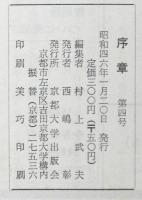 序章 第四号
昭和四六年一月二〇日 発行
定価三〇〇円(〒五〇円)
編集者 村上武彦
発行者 西嶋彰
発行所 京都大学出版会
京都市左京区吉田京都大学構内
振替(京都)二七五三六
印刷 美巧印刷